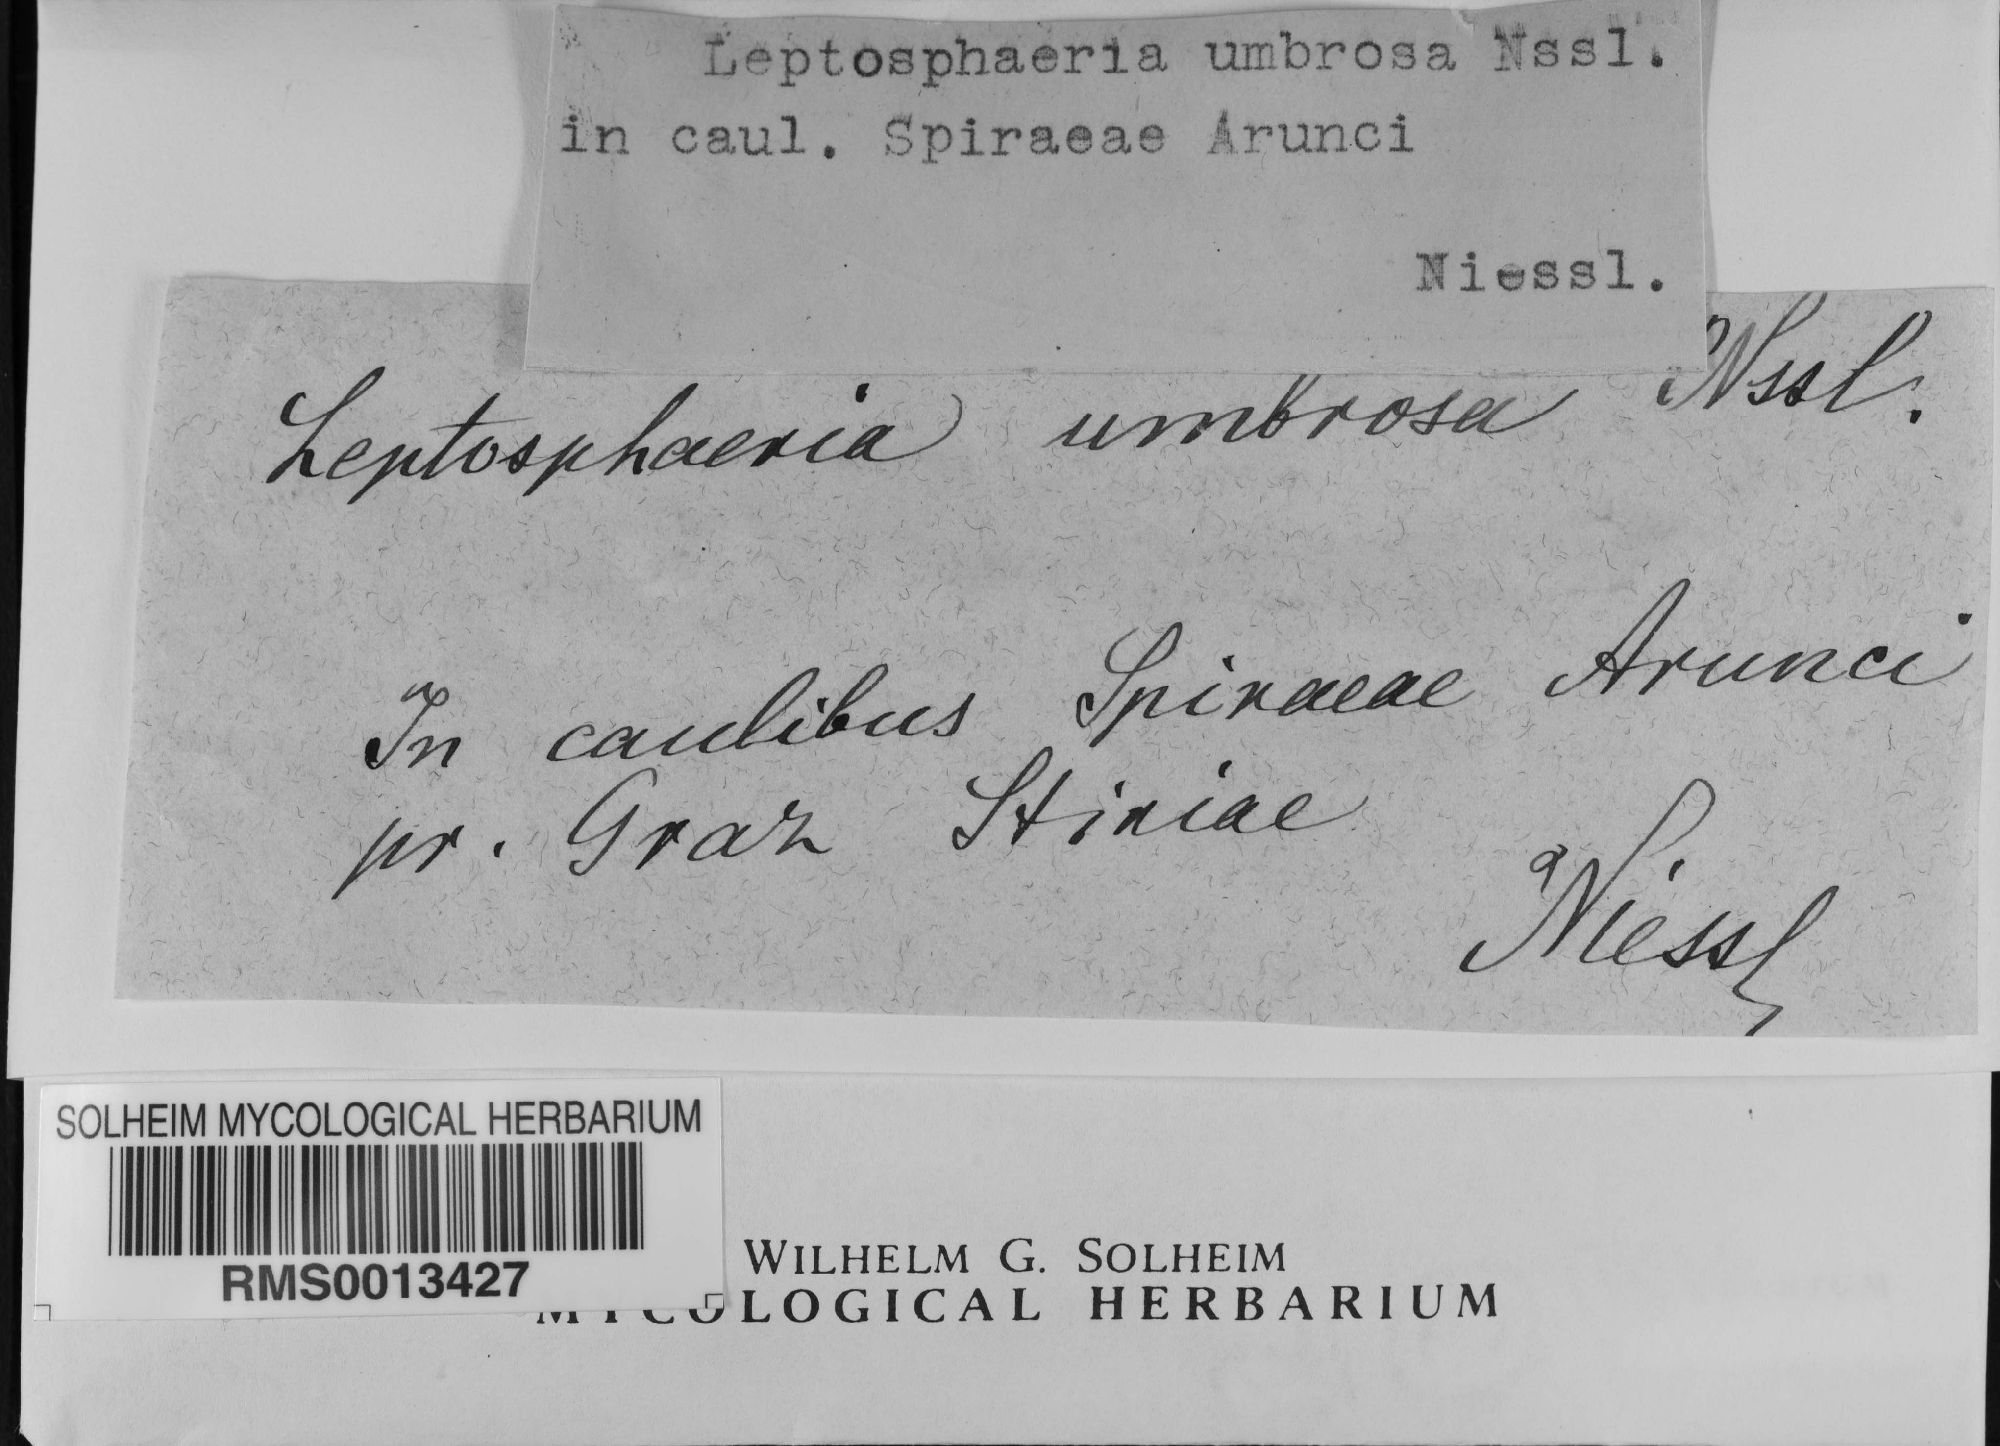 Leptosphaeria umbrosa Nssl.
in caul. Spiraeae Arunci
Niessl.
Leptosphaeria umbrosa Nssl.
In caulibus Spiraeae Arunci
pr. Graz Stiriae
Niessl
SOLHEIM MYCOLOGICAL HERBARIUM
RMS0013427
WILHELM G. SOLHEIM
MYCOLOGICAL HERBARIUM